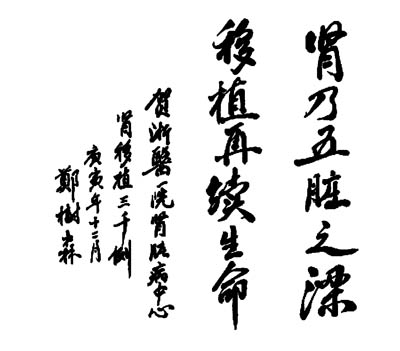 肾乃五脏之梁
移植再续生命
贺浙醫一院肾脏病中心
肾移植三千例
庚寅年十二月
鄭樹森